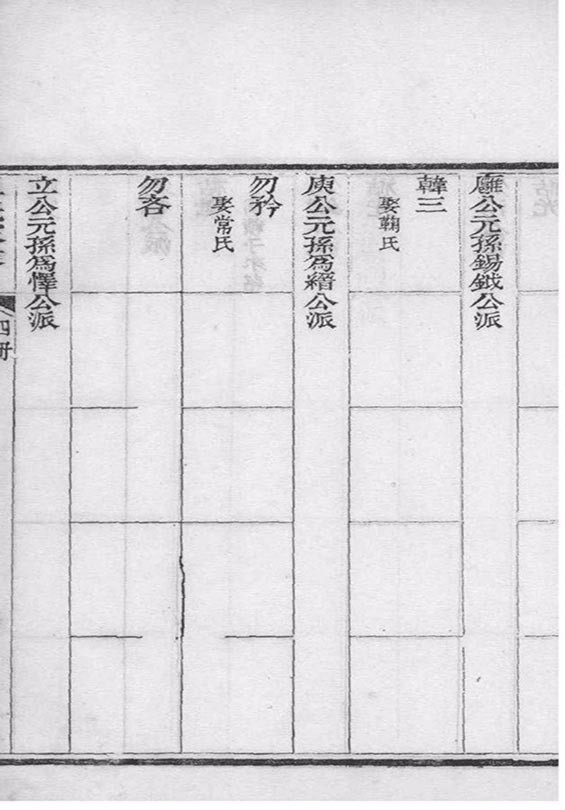 龎公元孫錫鉞公派
韓三
娶鞠氏
庾公元孫爲縉公派
勿矜
娶常氏
勿吝
立公元孫爲懌公派
四冊